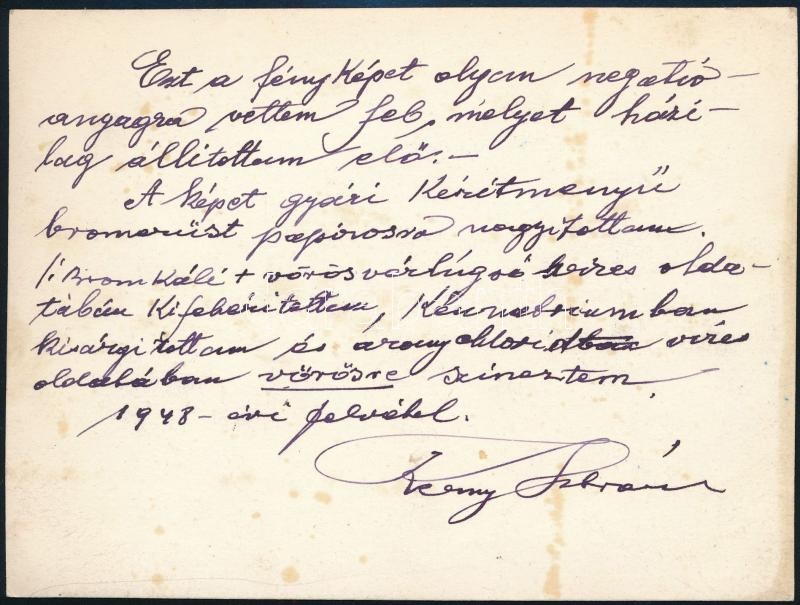 Ezt a fényképet olyan negatív-
anyagra vettem fel, melyet házi-
lag állítottam elő.-
A képet gyári készítményű
bromezüst papírosra nagyítottam.
Bromkáli + vörösvérlúgsó vizes olda-
tában kifehérítettem, Kénnatriumban
kisárgítottam és aranychlorid vizes
oldatában vörösre szineztem.
1948-évi felvétel.
István